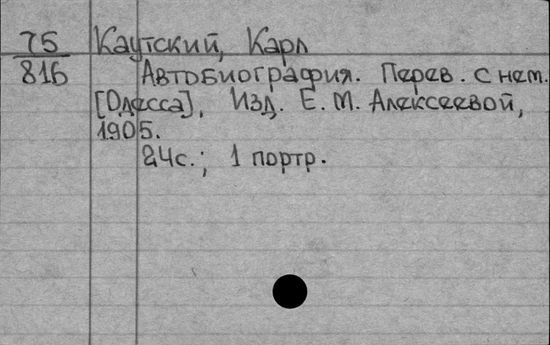 75 Каутский, Карл
816 Автобиография. Перев. с нем.
[Одесса], Изд. Е. М. Алексеевой,
1905.
24с.; 1 портр.